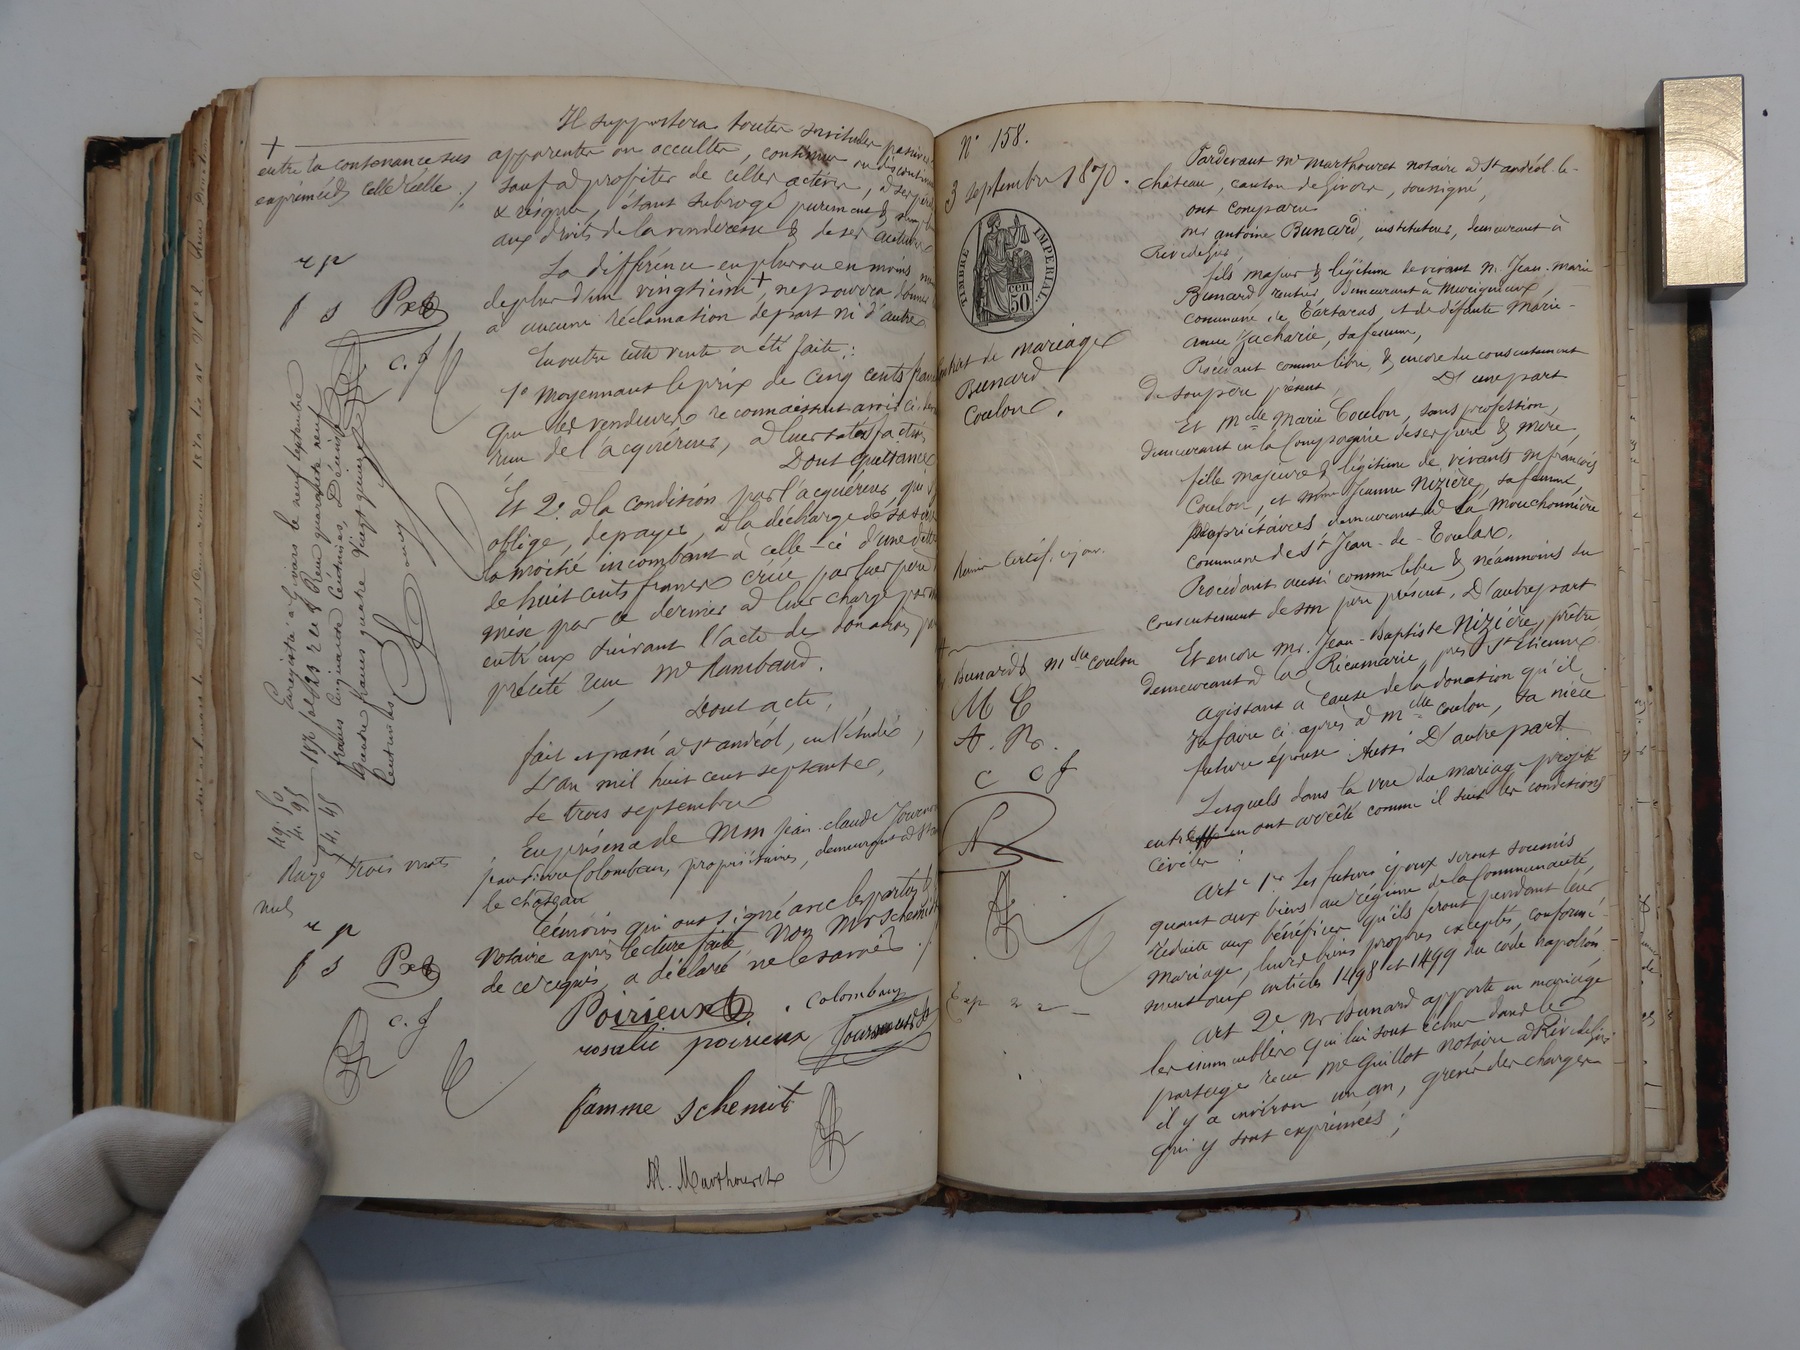 Il supportera toutes servitudes passives
apparentes ou occultes, continues ou discontinues
sauf à profiter de celles actives, à ses périls
& risques, étant subrogé purement &
aux droits de la venderesse & de ses auteurs
La différence en plus ou en moins
de plus d'un vingtième +, ne pourra donner
à aucune réclamation de part ni d'autre
En outre cette vente a été faite :
1° Moyennant le prix de cinq cents francs
que les vendeurs reconnaissent avoir
reçu de l'acquéreur, à leur satisfaction
Dont quittance
Et 2° à la condition par l'acquéreur, qui s'y
oblige, de payer, à la décharge de sa sœur
la moitié incombant à celle-ci d'une dette
de huit cents francs créée par leur père
mise par ce dernier à leur charge
entr'eux suivant l'acte de donation
précité reçu Me Rambaud.
Dont acte,
fait et passé à St andéol, en l'étude,
L'an mil huit cent septante,
Le trois septembre
En présence de Mrs jean claude
Colomban, propriétaires, demeurant à St
le château
témoins qui ont signé avec les parties &
Notaire après lecture faite, non Mr Schemith
de ce requis, a déclaré ne le savoir ./.
Poirieux
Colomban
rosalie poirieux
famme schemit
M. Marthouret
+
entre la contenance sus
exprimée & celle réelle ./.
r p
f s
C. J
Enregistré à Givors le neuf septembre
1870
Reçu quarante neuf
francs cinquante centimes, Décimes
quatre francs quatre vingt quinze
centimes
49. 50
4. 95
54. 45
Rayé trois mots
nuls
r p
f s
C. J
N° 158.
3 septembre 1870.
TIMBRE IMPERIAL
50 cen
Contrat de mariage
Bunard
Coulon.
Remis certif. ce jour.
+
Bunard & Mlle Coulon
M C
A. B.
C C J
Exp
Pardevant Me Marthouret notaire à St andéol-le-
château, canton de Givors, soussigné,
ont comparu
Mr antoine Bunard, instituteur, demeurant à
Rivedegier,
fils majeur & légitime de vivant Mr Jean-marie
Bunard rentier, demeurant à Murigneux,
commune de Tartaras, et de défunte Marie-
anne Zacharie, sa femme,
Procédant comme libre, & encore du consentement
de son père présent, D'une part
Et Mlle Marie Coulon, sans profession,
demeurant en la Compagnie de ses père & mère,
fille majeure & légitime de vivants Mr françois
Coulon, et Mme Jeanne Nizière, sa femme,
propriétaires demeurant à la Mouchonnière
commune de St Jean-de-Toulas.
Procédant aussi comme libre & néanmoins du
consentement de son père présent, D'autre part
Et encore Mr. Jean-Baptiste Nizière, prêtre
demeurant à la Ricamarie, près St Etienne
agissant à cause de la donation qu'il
va faire ci-après à Mlle Coulon, sa nièce
future épouse. Aussi D'autre part.
Lesquels dans la vue du mariage projeté
entre en ont arrêté comme il suit les conditions
civiles :
Arte 1er Les futurs époux seront soumis
quant aux biens au régime de la Communauté,
réduite aux bénéfices qu'ils feront pendant leur
Mariage, leurs biens propres exceptés, conformé-
ment aux articles 1498 et 1499 du code napoléon,
Art 2e Mr Bunard apporte en mariage
les immeubles qui lui sont échus dans le
partage reçu Me Guillot notaire à Rivedegier
il y a environ un an, grevés des charges
qui y sont exprimées ;